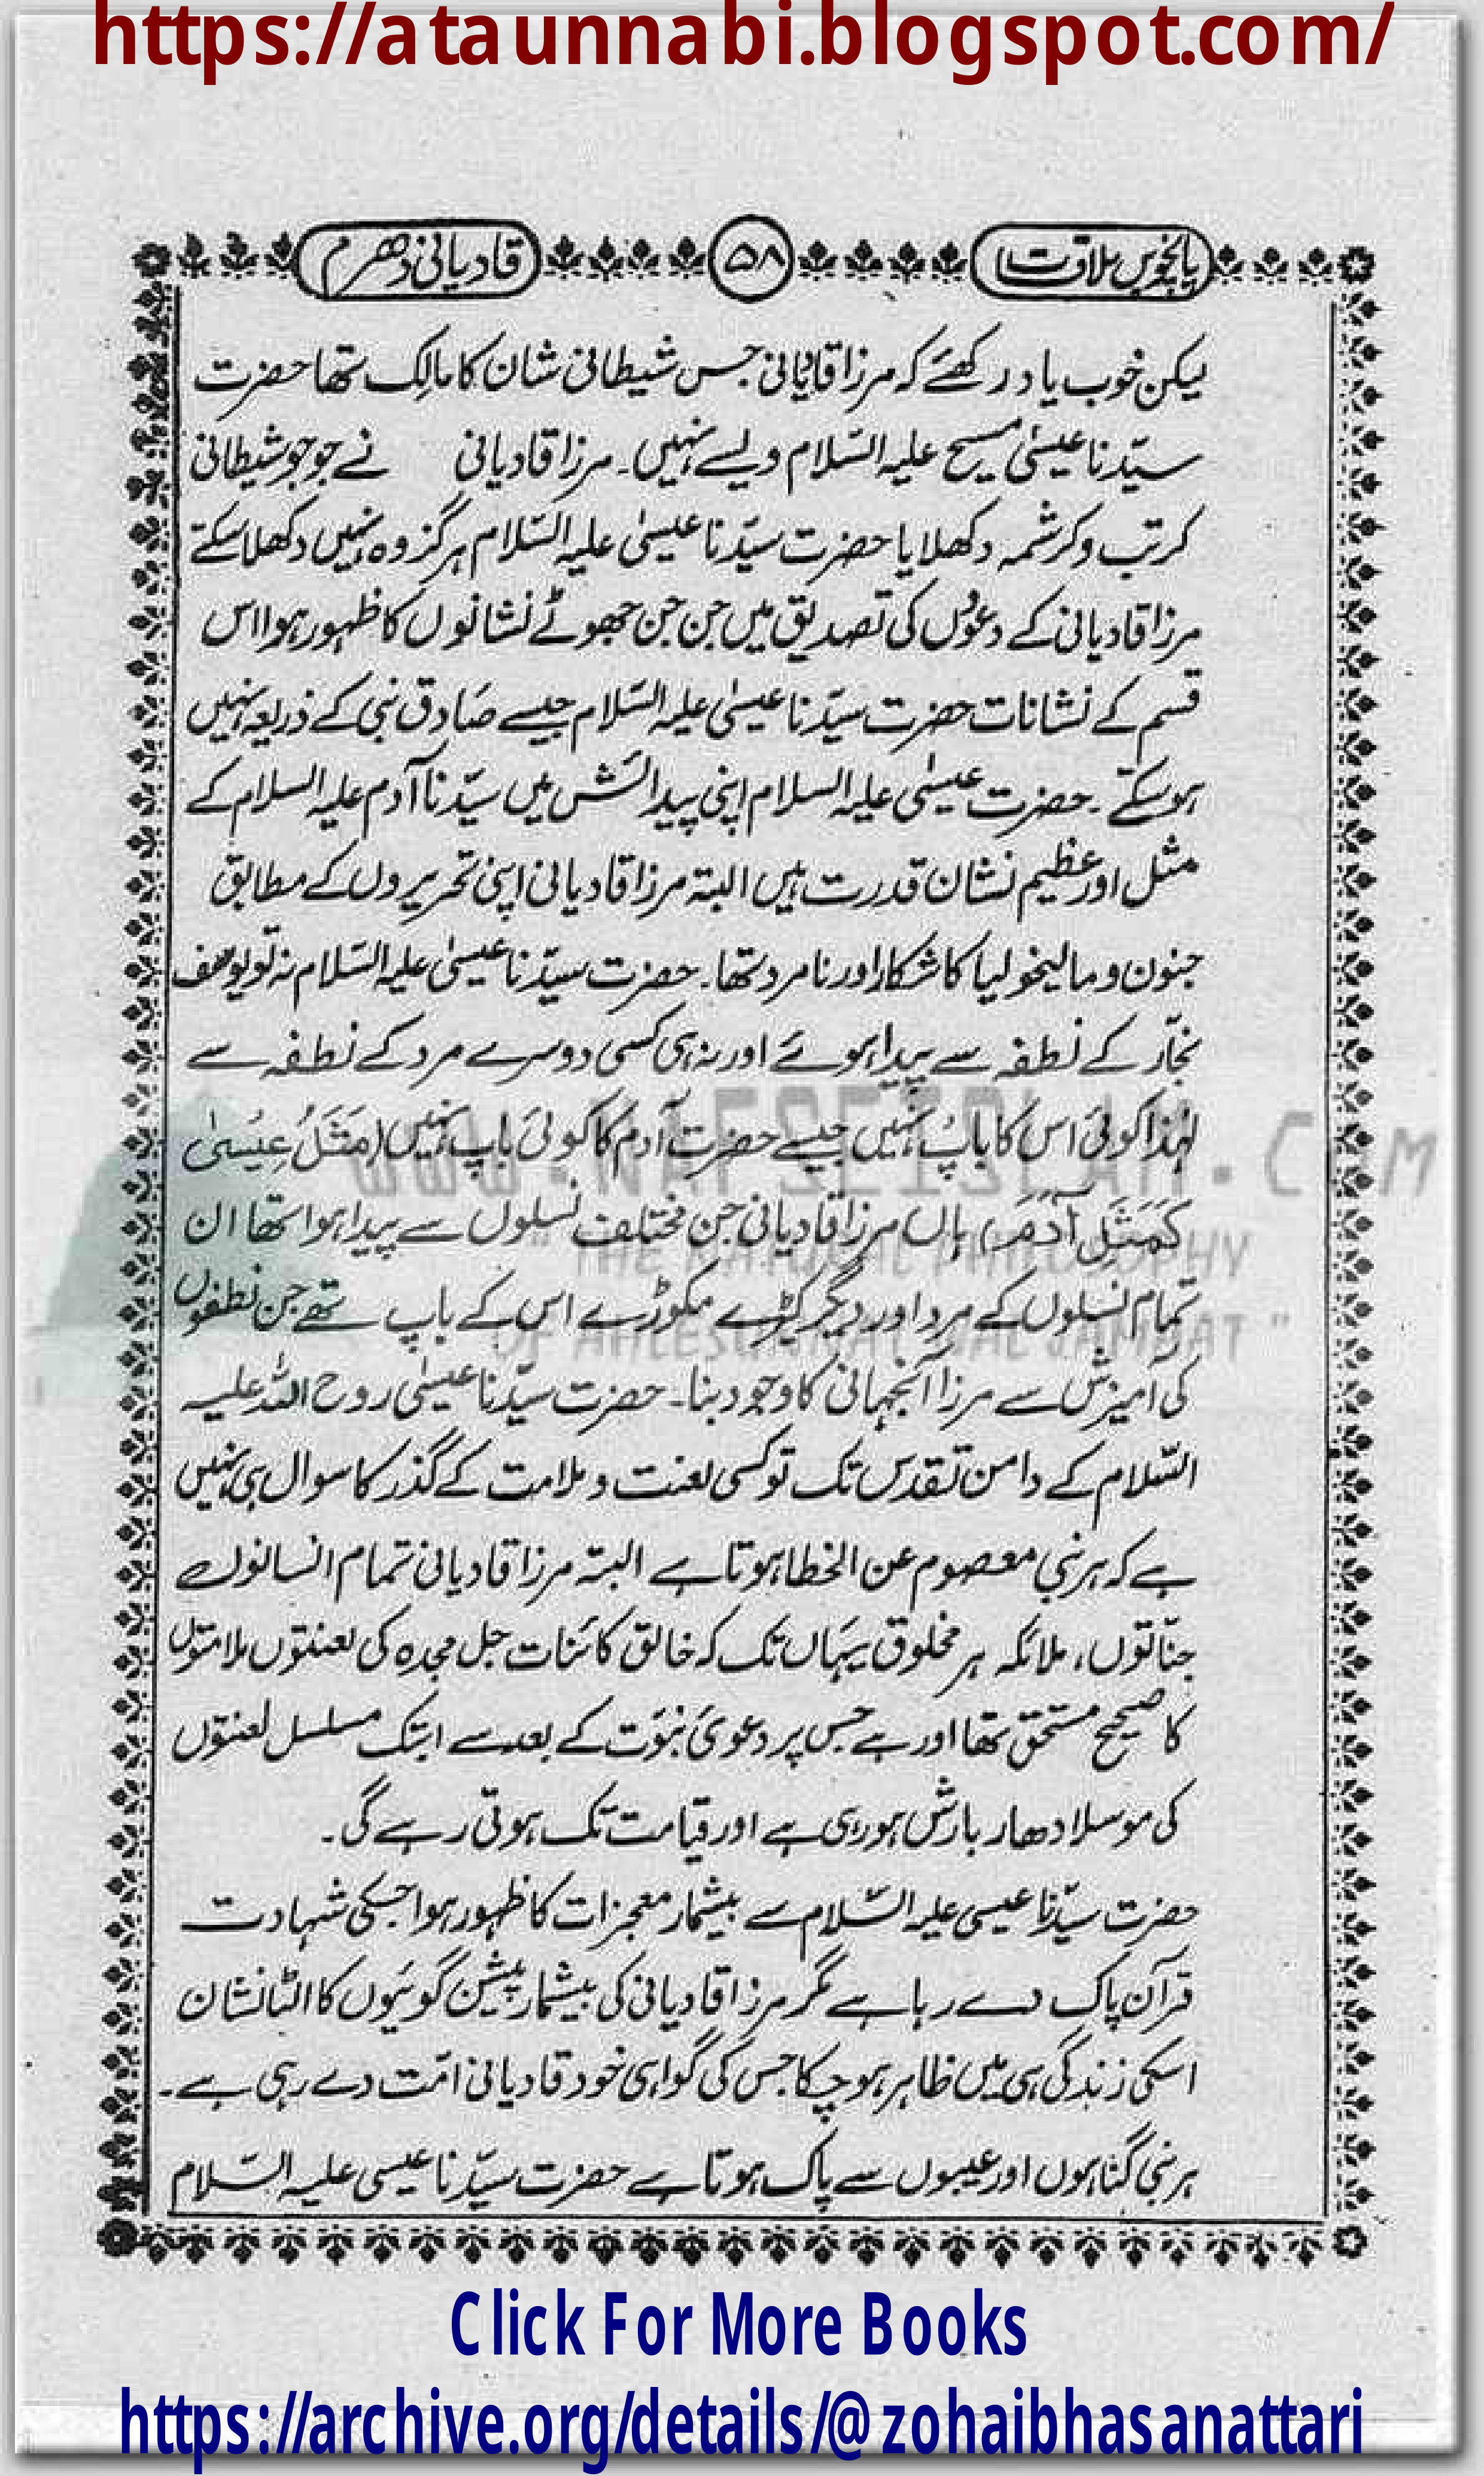 https://ataunnabi.blogspot.com/
پانچویں ملاقت ۵۸ قادیانی دھرم
لیکن خوب یاد رکھئے کہ مرزا قادیانی جس شیطانی شان کا مالک تھا حضرت
سیّدنا عیسیٰ مسیح علیہ السّلام ویسے نہیں۔ مرزا قادیانی نے جو جو شیطانی
کرتب و کرشمہ دکھلایا حضرت سیّدنا عیسیٰ علیہ السّلام ہرگز وہ نہیں دکھلا سکتے
مرزا قادیانی کے دعوٰں کی تصدیق میں جن جن جھوٹے نشانوں کا ظہور ہوا اس
قسم کے نشانات حضرت سیّدنا عیسیٰ علیہ السّلام جیسے صادق نبی کے ذریعہ نہیں
ہو سکتے ۔ حضرت عیسٰی علیہ السلام اپنی پیدائش میں سیّدنا آدم علیہ السلام کے
مثل اور عظیم نشان قدرت ہیں البتہ مرزا قادیانی اپنی تحریروں کے مطابق
جنون و مالیخولیا کا شکار اور نامرد تھا۔ حضرت سیّدنا عیسیٰ علیہ السّلام نہ تو یوسف
نجّار کے نطفہ سے پیدا ہوئے اور نہ ہی کسی دوسرے مرد کے نطفہ سے
لہٰذا کوئی اس کا باپ نہیں جیسے حضرت آدم کا کوئی باپ نہیں (مَثَلُ عِیْسیٰ
کَمَثَلِ آدَمَ) ہاں مرزا قادیانی جن مختلف نسلوں سے پیدا ہوا تھا ان
تمام نسلوں کے مرد اور دیگر کیڑے مکوڑے اس کے باپ تھے جن نطفوں
کی آمیزش سے مرزا آنجہانی کا وجود بنا۔ حضرت سیّدنا عیسٰی روح اللہ علیہ
السّلام کے دامن تقدس تک تو کسی لعنت و ملامت کے گذر کا سوال ہی نہیں
ہے کہ ہر نبی معصوم عن الخطا ہوتا ہے البتہ مرزا قادیانی تمام انسانوں
جناتوں، ملائکہ ہر مخلوق یہاں تک کہ خالق کائنات جل مجدہ کی لعنتوں ملامتوں
کا صحیح مستحق تھا اور ہے جس پر دعوئ نبوّت کے بعد سے ابتک مسلسل لعنتوں
کی موسلا دھار بارش ہو رہی ہے اور قیامت تک ہوتی رہے گی۔
حضرت سیّدنا عیسی علیہ السّلام سے بیشمار معجزات کا ظہور ہوا جسکی شہادت
قرآن پاک دے رہا ہے مگر مرزا قادیانی کی بیشمار پیشین گوئیوں کا الٹا نشان
اسکی زندگی ہی میں ظاہر ہو چکا جس کی گواہی خود قادیانی امّت دے رہی ہے۔
ہر نبی گناہوں اور عیبوں سے پاک ہوتا ہے حضرت سیّدنا عیسی علیہ السّلام
WWW.NAFSEISLAM.COM
"THE NATURAL PHILOSOPHY
OF AHLESUNNAT WAL JAMAAT"
Click For More Books
https://archive.org/details/@zohaibhasanattari